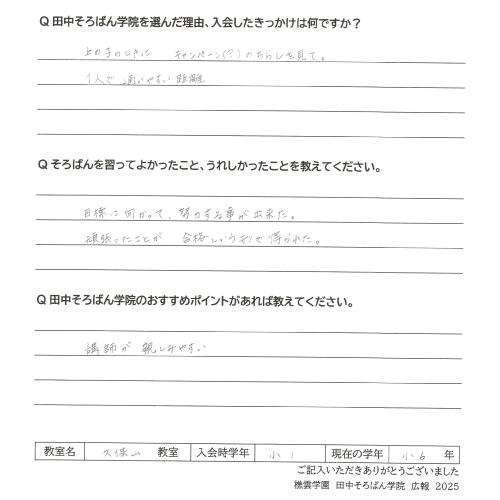 Q 田中そろばん学院を選んだ理由、入会したきっかけは何ですか？
上の子のときに キャンペーン(？)のちらしを見て。
1人で 通いやすい 距離
Q そろばんを習ってよかったこと、うれしかったことを教えてください。
目標に向かって、努力する事が出来た。
頑張ったことが 合格という形で得られた。
Q 田中そろばん学院のおすすめポイントがあれば教えてください。
講師が 親しみやすい
教室名 久保山 教室 入会時学年 小1 現在の学年 小6 年
ご記入いただきありがとうございました
穂雲学園 田中そろばん学院 広報 2025